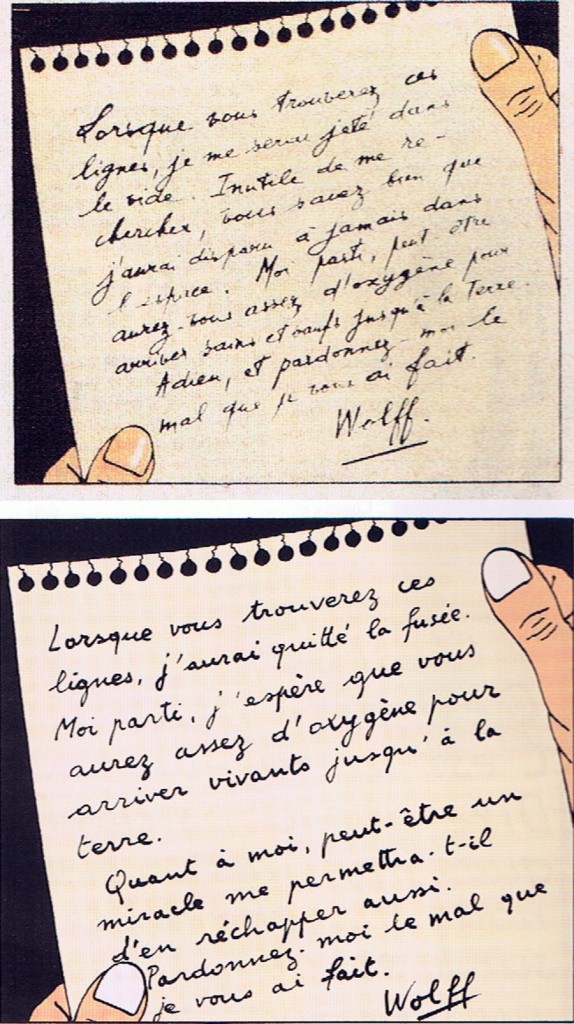 Lorsque vous trouverez ces
lignes, je me serai jeté dans
le vide. Inutile de me re-
chercher, vous savez bien que
j'aurai disparu à jamais dans
l'espace. Moi parti, peut être
aurez-vous assez d'oxygène pour
arriver sains et saufs jusqu'à la Terre.
Adieu, et pardonnez-moi le
mal que je vous ai fait.
Wolff.
Lorsque vous trouverez ces
lignes, j'aurai quitté la fusée.
Moi parti, j'espère que vous
aurez assez d'oxygène pour
arriver vivants jusqu'à la
terre.
Quant à moi, peut-être un
miracle me permettra-t-il
d'en réchapper aussi.
Pardonnez-moi le mal que
je vous ai fait.
Wolff